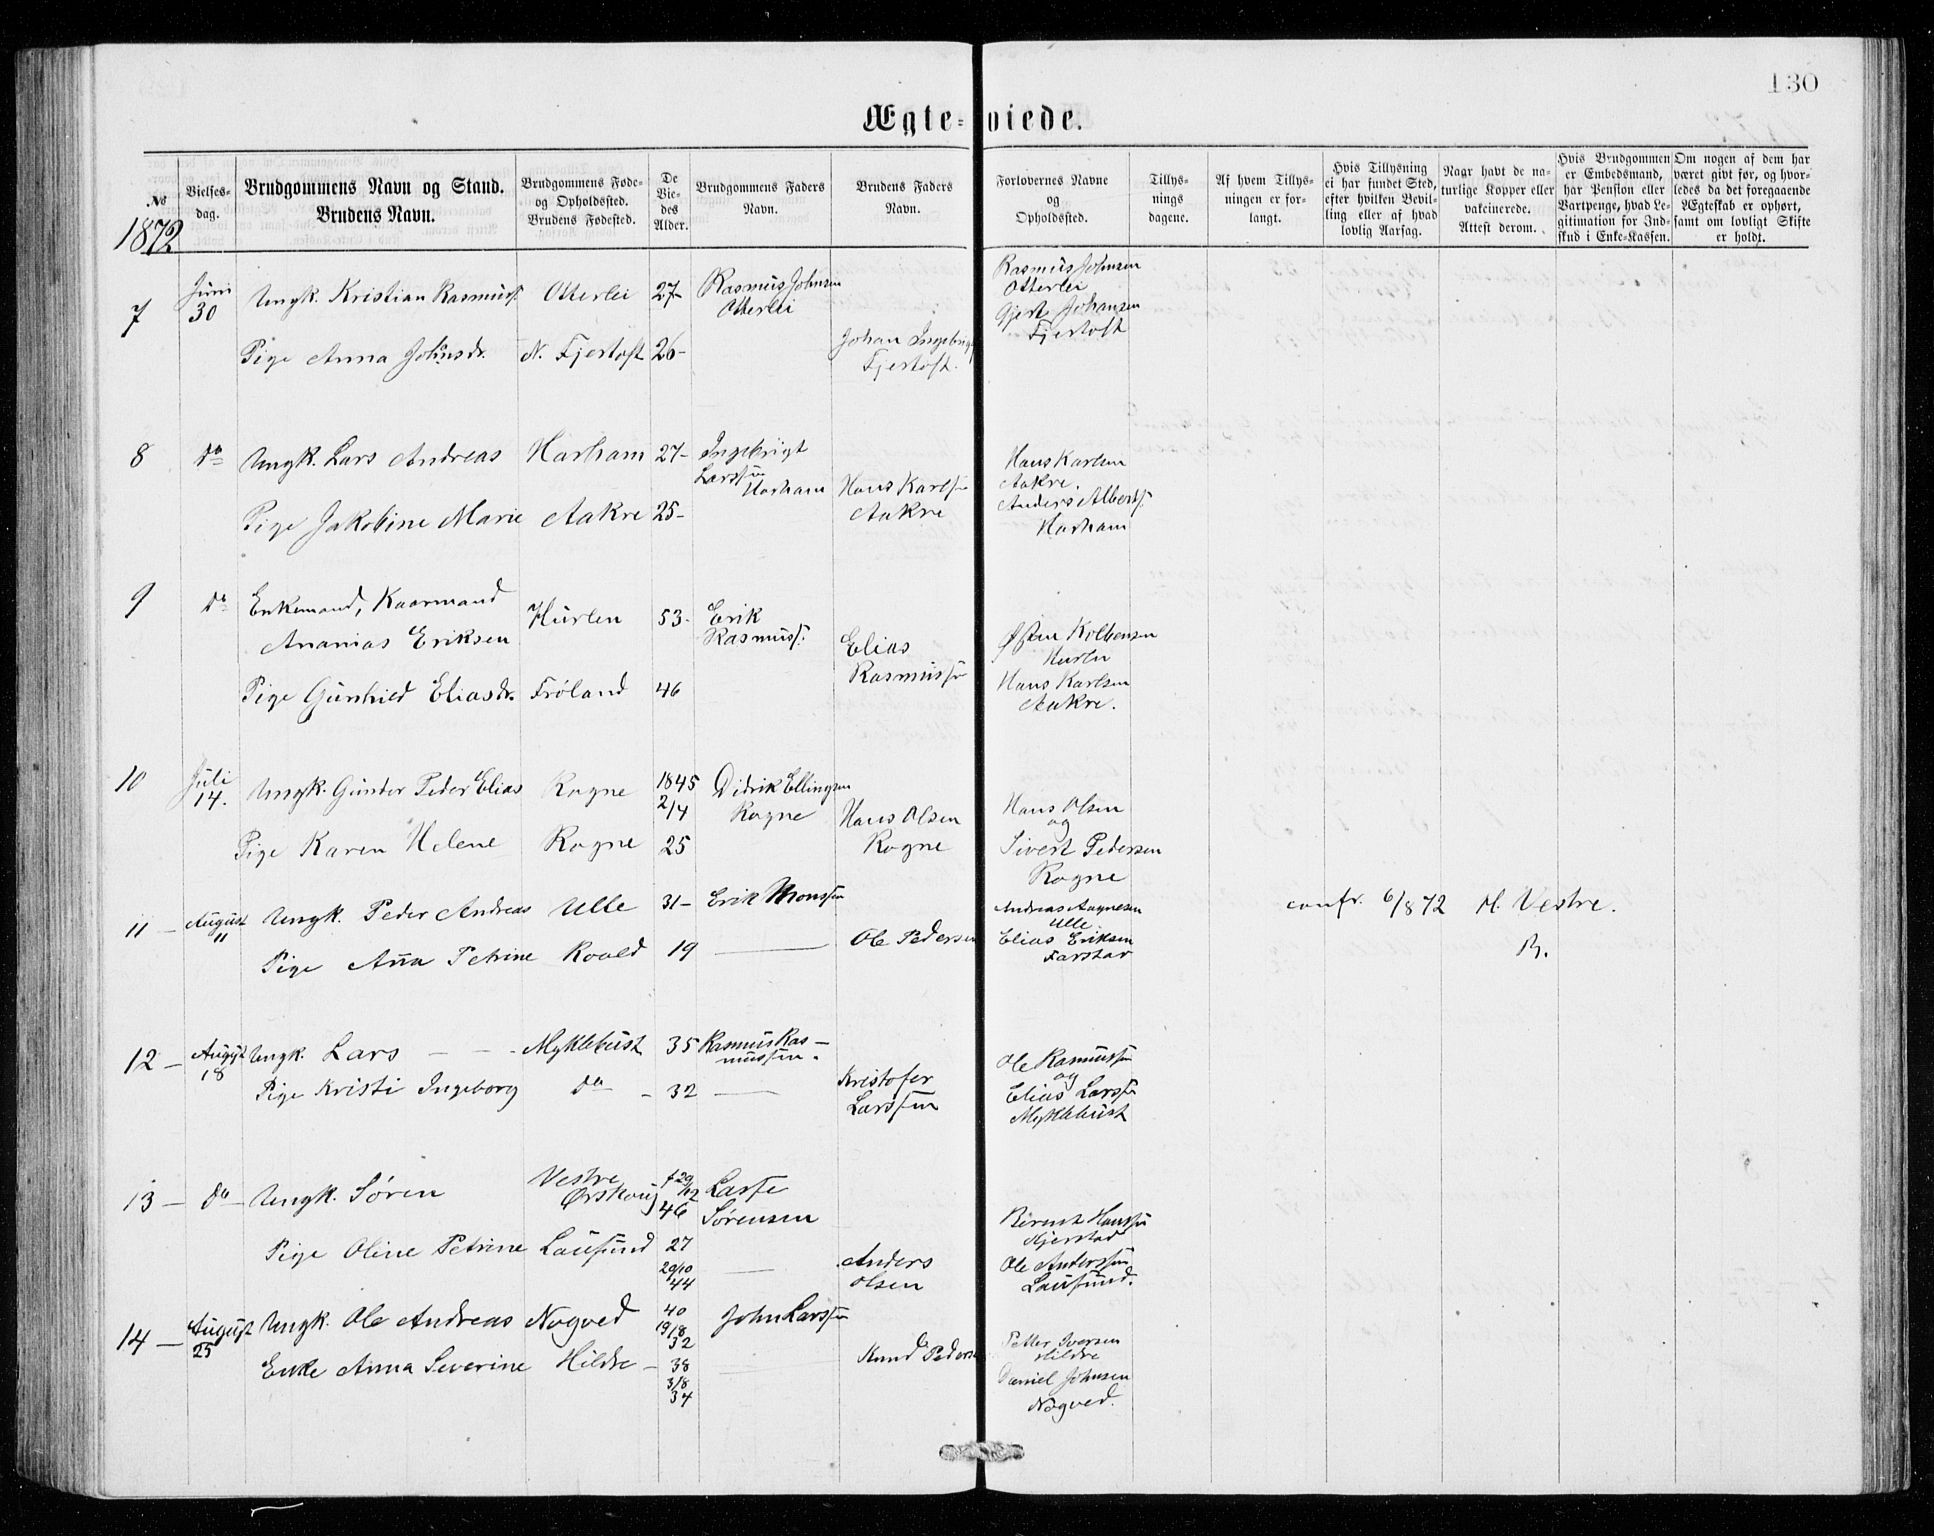 130
Ægte-viede.
No
1872
Vielses-
dag.
Brudgommens Navn og Stand.
Brudens Navn.
Brudgommens Føde-
og Opholdssted.
Brudens Fødested.
De
Vie-
des
Alder.
Brudgommens Faders
Navn.
Brudens Faders
Navn.
Forlovernes Navne
og
Opholdssted.
Tillys-
nings
dagene.
Af hvem Tillys-
ningen er for-
langt.
Hvis Tillysning
ei har fundet Sted,
efter hvilken Bevil-
ling eller af hvad
lovlig Aarsag.
Naar havt de na-
turlige Kopper eller
vakcinerede.
Attest derom.
Hvis Brudgommen
er Embedsmand,
har Pension eller
Vartpenge, hvad Le-
gitimation for Ind-
skud i Enke-Kassen.
Om nogen af dem har
været givt før, og hvor-
ledes da det foregaaende
Ægteskab er ophørt,
samt om lovligt Skifte
er holdt.
7
Juni
30
Ungk. Kristian Rasmuss.
Otterlei
27-
Rasmus Johnsen
Otterlei
Rasmus Johnsen
Otterlei
Gjert Johansen
Fjertoft
Pige Anna Johnsdr.
N. Fjertoft
26-
Johan Ingebrigs
Fjertoft.
8
Do
Ungk. Lars Andreas
Harham
27-
Ingebrigt
Larssen
Harham
Hans Karlsen
Aakre.
Anders Alberts.
Harham
Pige Jakobine Marie
Aakre
25-
Hans Karlsen
Aakre
9
Do
Enkemand, Kaarmand
Ananias Eriksen
Hurlen
53-
Erik
Rasmuss.
Østen Kolbensen
Hurlen
Hans Karlsen
Aakre.
Pige Gunhild Eliasdr.
Frøland
46
Elias
Rasmussen
10
Juli
14.
Ungk. Gunder Peder Elias
Rogne
1845
2/4
Didrik Ellingsen
Rogne
Hans Olsen
og
Sivert Pedersen
Rogne
Pige Karen Helene
Rogne
25
Hans Olsen
Rogne
11 -
August
11
Ungk. Peder Andreas
Ulle
31-
Erik Monssen
Andreas Aagnesen
Ulle
Elias Eriksen
Farstad
confr. 6/8 72
M. Vestre.
B.
Pige Anna Petrine
Roald
19
Ole Pedersen
12 -
August
18
Ungk. Lars - - -
Myklebust
35
Rasmus Ras-
mussen.
Ole Rasmussen
og
Elias Larssen
Myklebust
Pige Kristi Ingeborg
do - -
32
Kristofer
Larssen
13 -
do -
Ungk. Søren
Vestre
Ørskoug
f 29/12
46
Lasse
Sørensen
Bernt Hanssen
Kjerstad
Ole Anderssen
Lausund.
Pige Oline Petrine
Lausund
27
29/10
44
Anders
Olsen
14 -
August
25
Ungk. Ole Andreas
Nogved
40
19/8
32
John Larssen
Petter Iversen
Hildre
Daniel Johnsen
Nogved.
Enke Anna Severine
Hildre -
38
3/8
34
Knud Peders